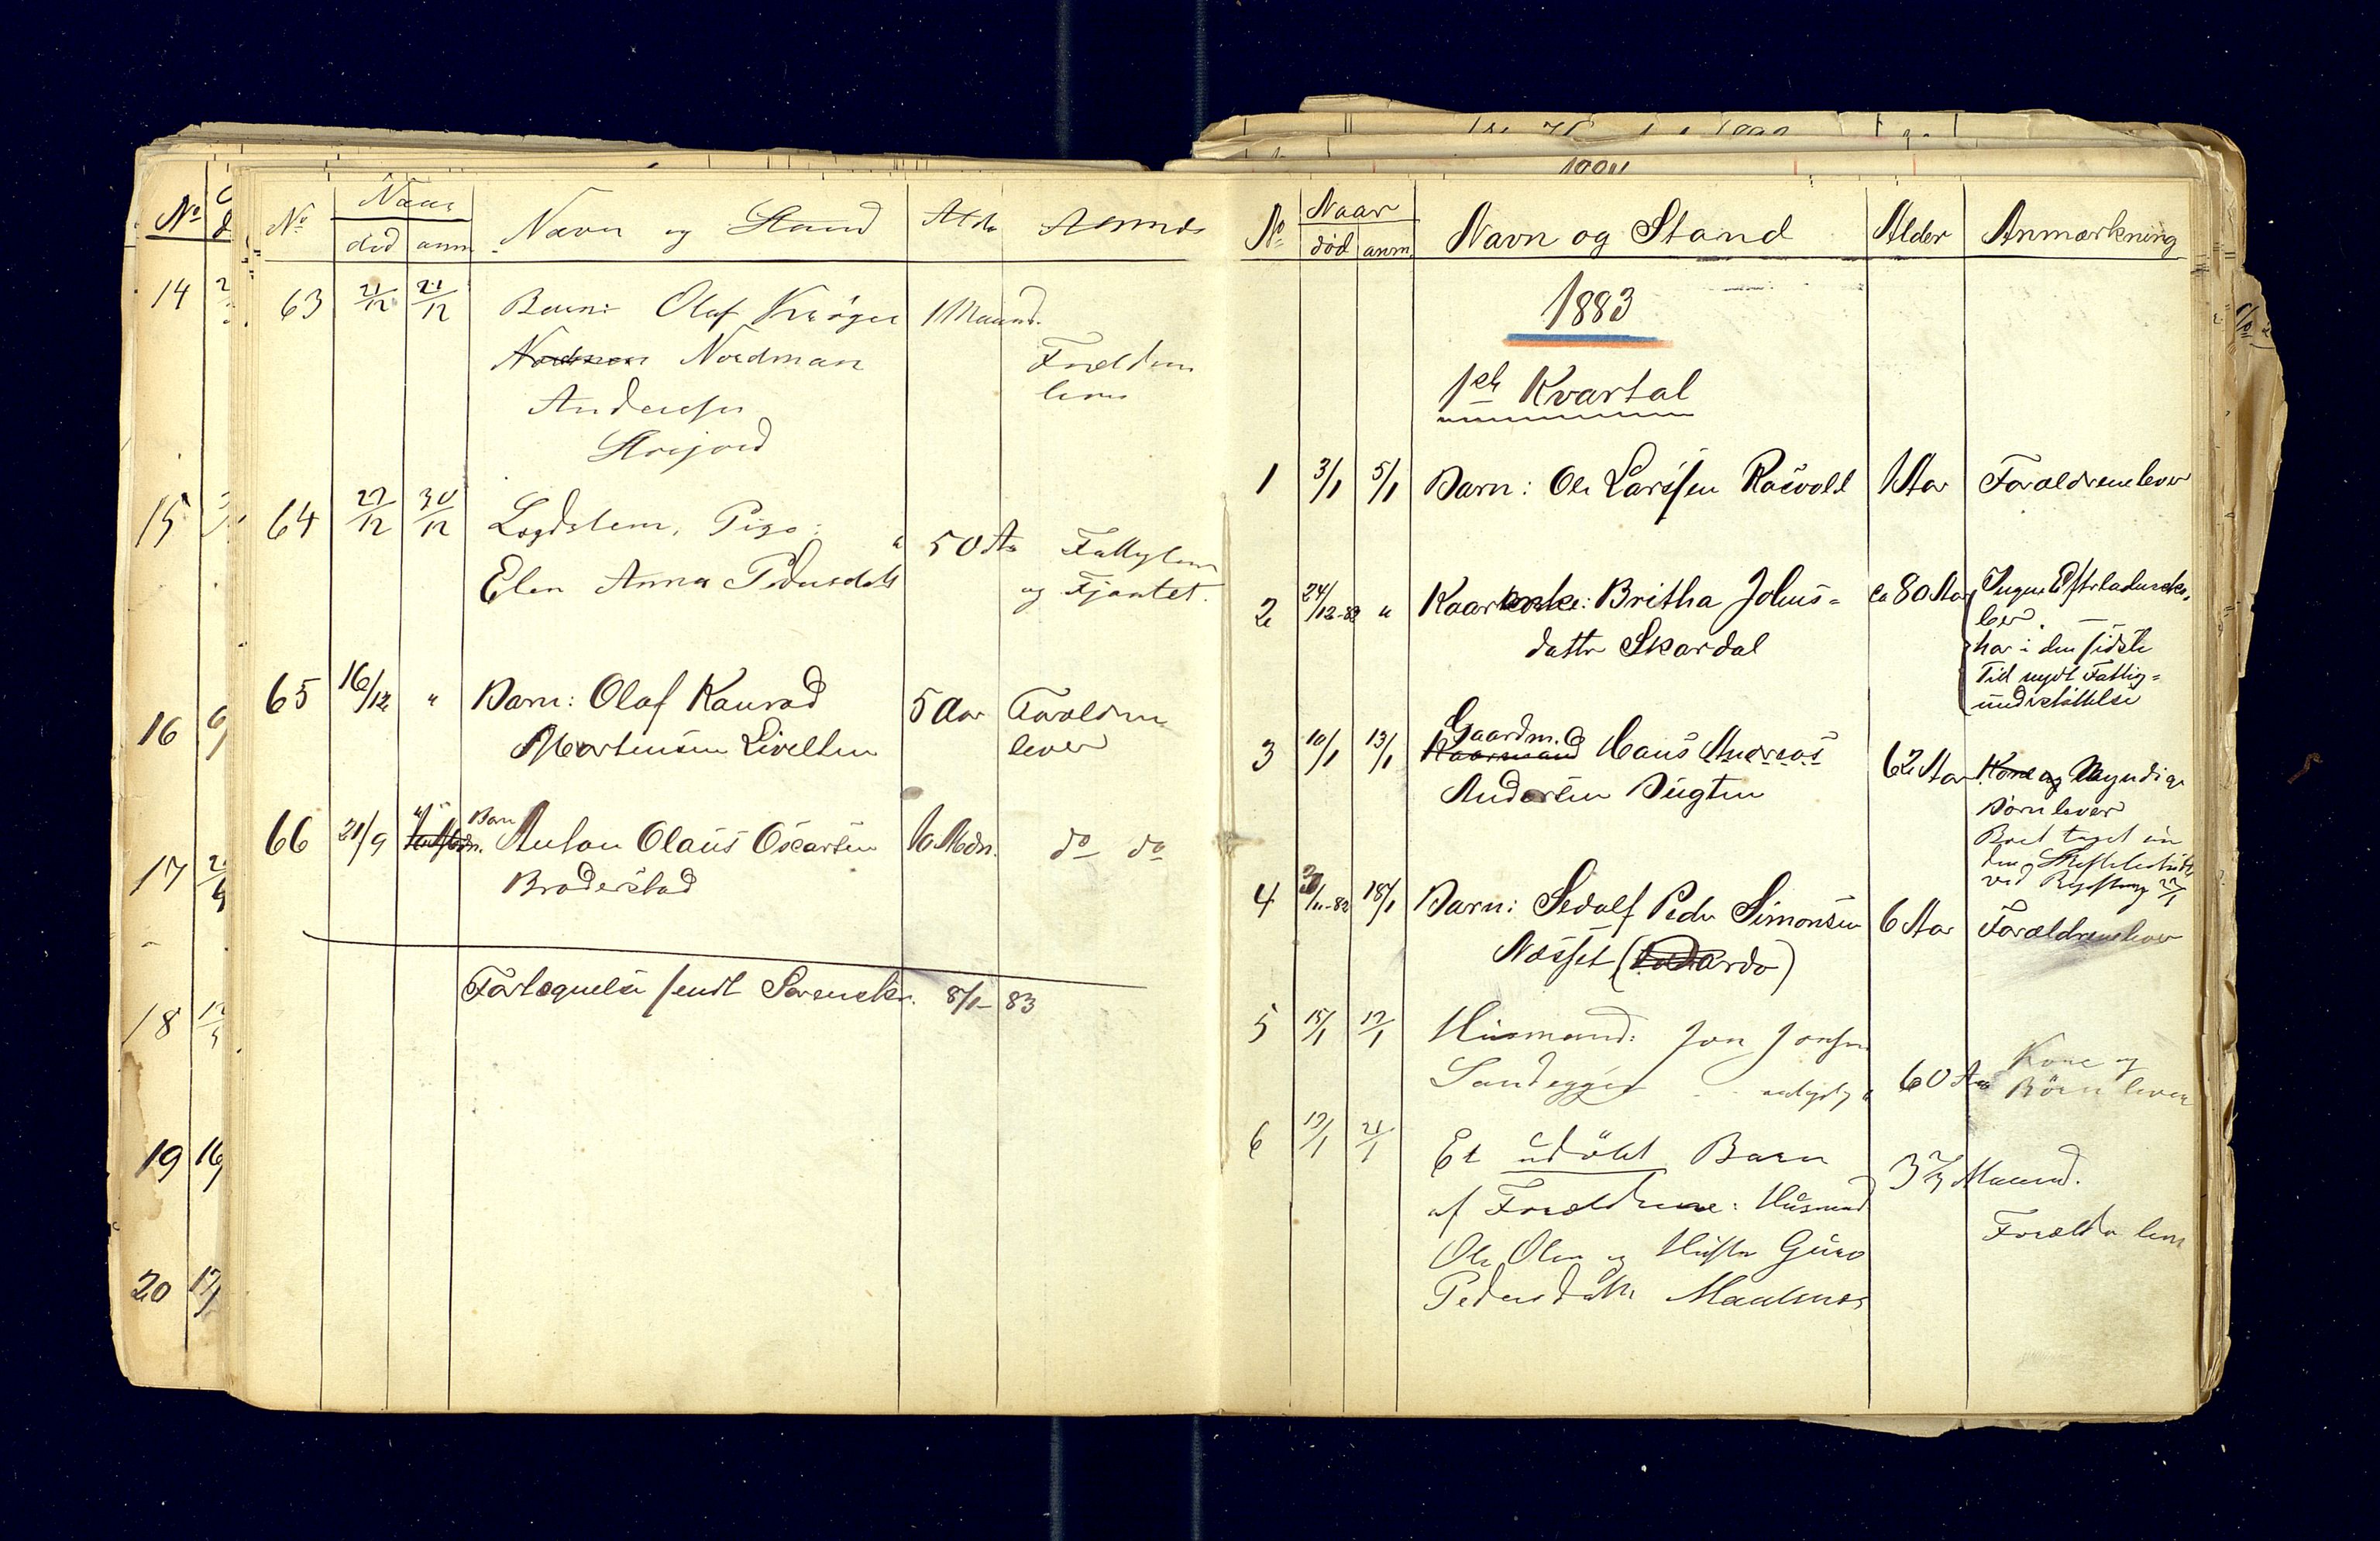 No Naar Navn og Stand Alder Anmærk
død anm.
63 21/12 21/12 Barn: Olaf Krøger 1 Maaned.
Nordman Forældrene
Andersen lever
Storjord
64 27/12 30/12 Logdslem, Pige: 50 Aar Fattiglem
Elen Anna Pedersdatt og Fjantet.
65 16/12 " Barn: Olaf Konrad 5 Aar Forældrene
Mortensen Livelten lever
66 21/9 " Barn Anton Olaus Oscarsen 10 Mdn. do do
Broderstad
Fortegnelse sendt Sorenskr. 8/1- 83
No Naar Navn og Stand Alder Anmærkning
død anm.
1883
1ste Kvartal
1 3/1 5/1 Barn: Ole Larssen Røsvold 1 Aar Forældrene lever
2 24/12-82 " Kaarenke: Britha Johns= ca 80 Aar Ingen Efterladenske.
lever.
datter Skardal har i den sidste
Tid nydt Fattig=
understøttelse
3 10/1 13/1 Gaardm.
Kaarmand Hans Andreas 62 Aar Kone og Myndige
Andersen Bugten Børn lever
Boet taget un
der Skiftebehdl
ved Regstrng 27/1
4 30/11-82 18/1 Barn: Sedolf Peder Simonsen 6 Aar Forældrene lever
Næsset
5 15/1 17/1 Husmand: Jon Jonsen Kone og
Sandegger 60 Aar Børn lever
6 17/1 21/1 Et udøbt Barn
af Forældrene: Husmand 3 Maaned.
Ole Olsen og Hustru Guro Forældre lever
Pedersdatter Maulnes
14
15
16
17
18
19 16
20 17/1